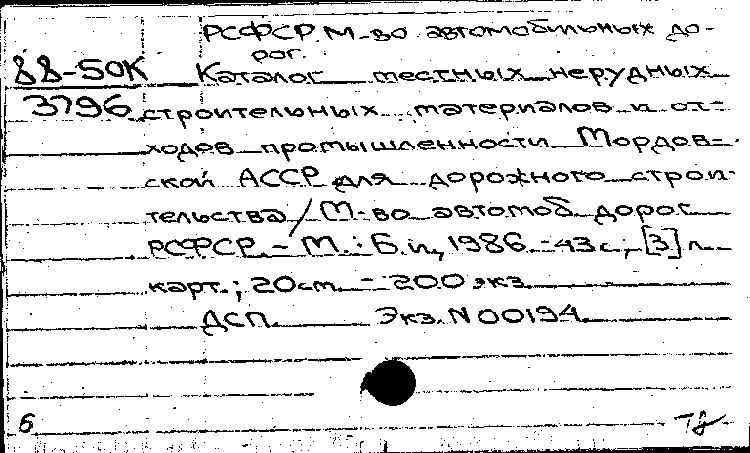 РСФСР. М-во автомобильных до-
рог.
88-50К Каталог местных нерудных
3796 строительных материалов и от-
ходов промышленности Мордов-
ской АССР для дорожного строи-
тельства / М-во автомоб. дорог
РСФСР. - М.: Б.и., 1986. - 43 с., [3] л.
карт.; 20 см. - 200 экз.
ДСП. Экз. N 00194.
6